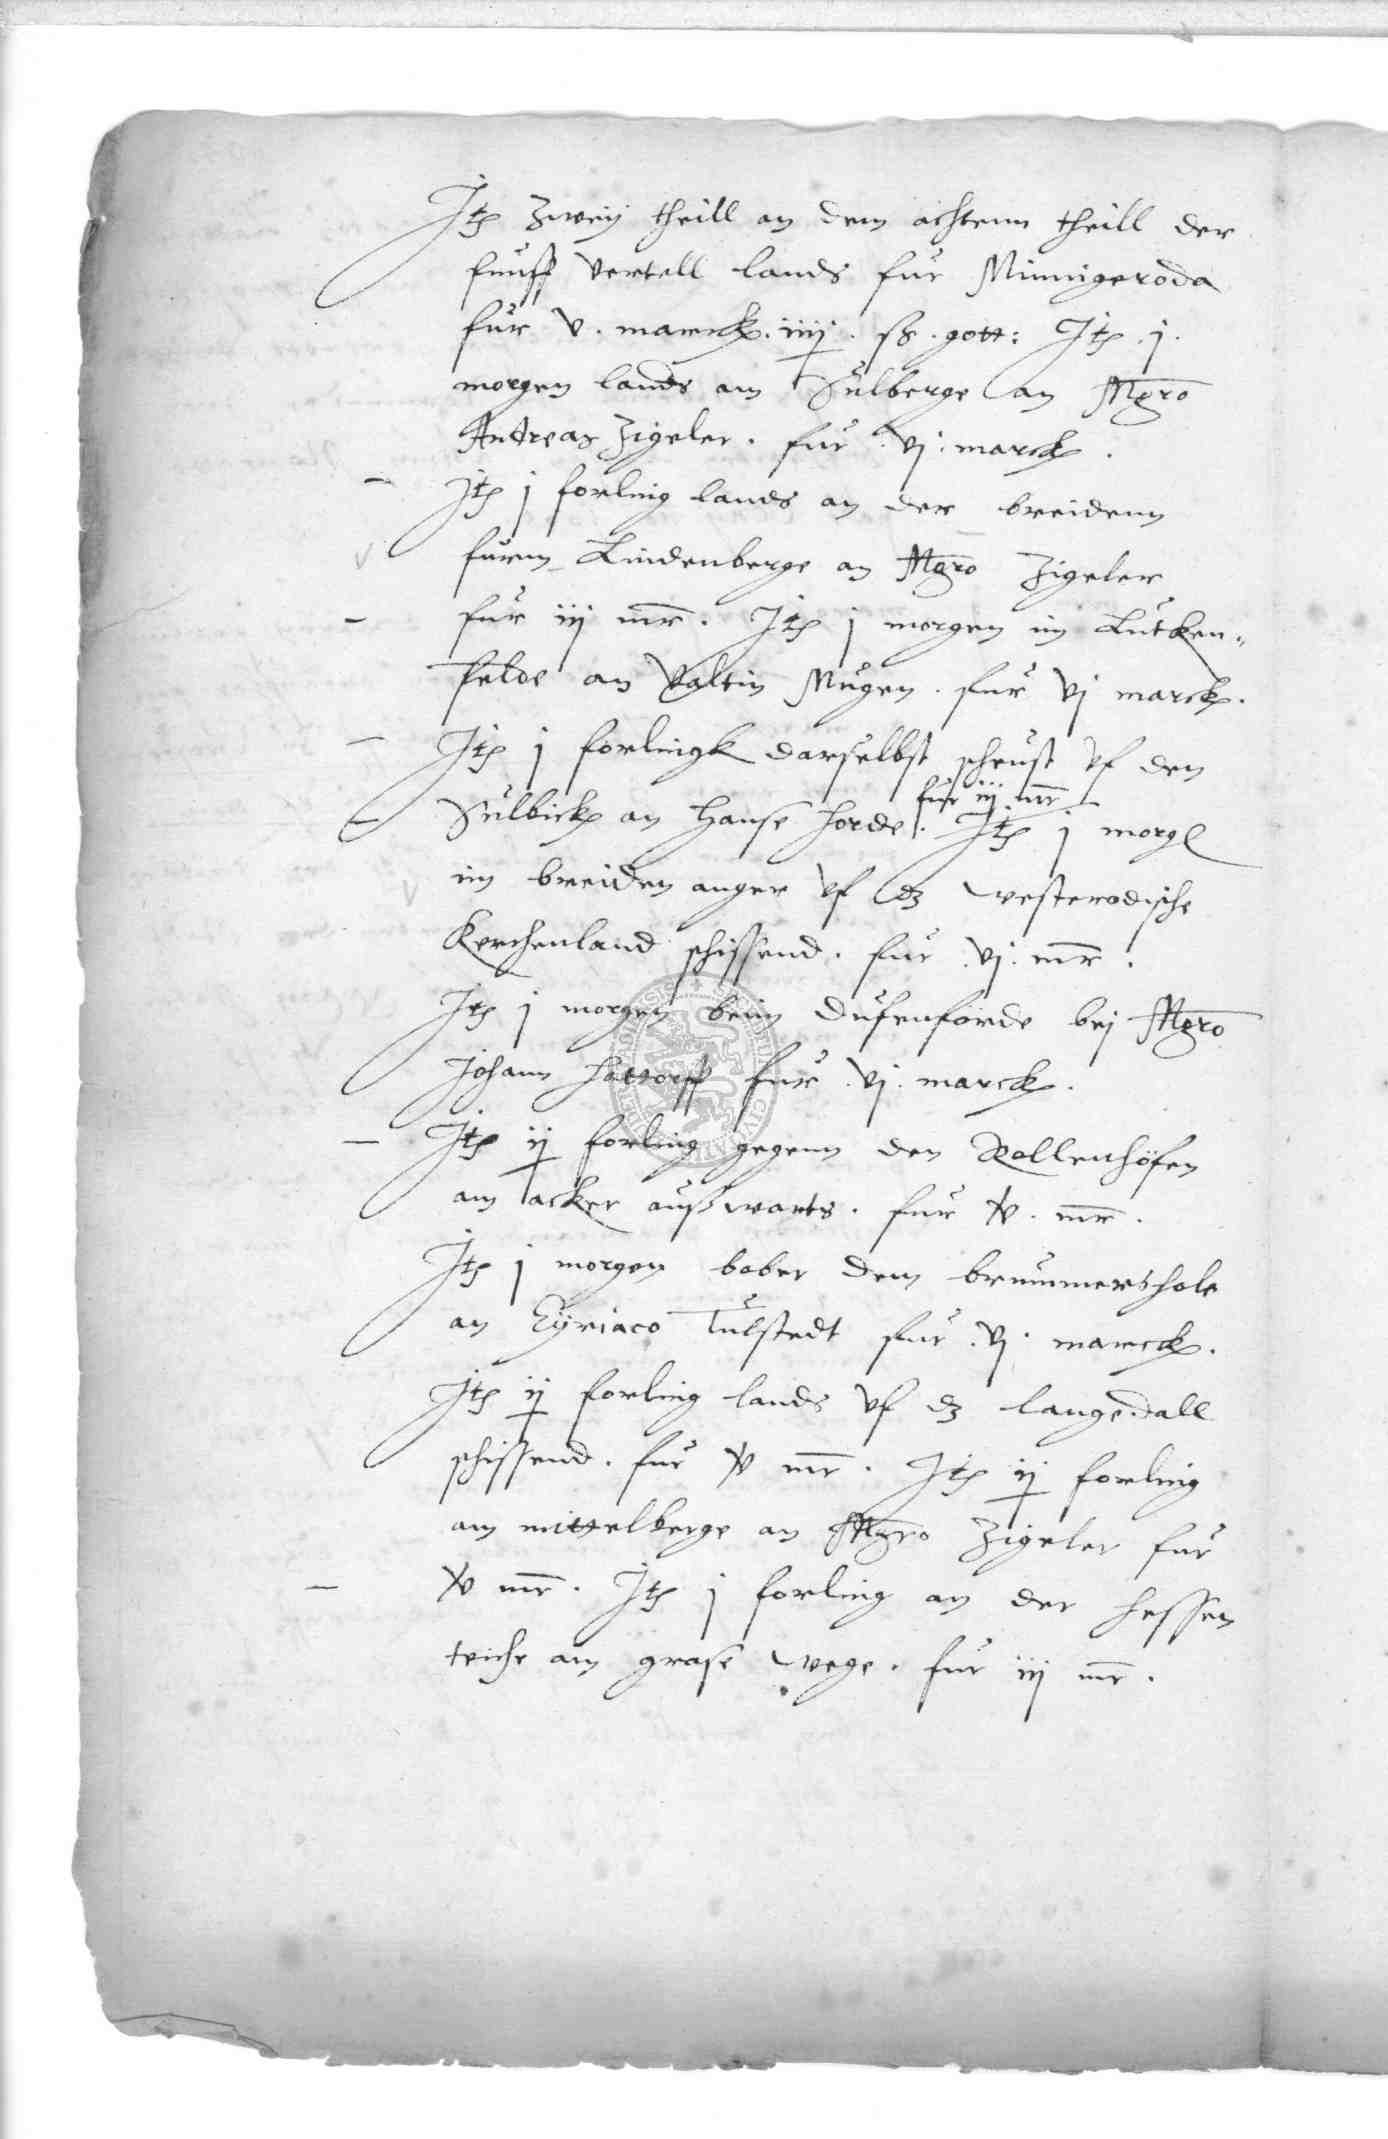 Itz zweij theill an dem achtenn theill der
funff vertell lands fur Minnigeroda
fur v. marck. iiij. ß. gott: Itz j.
morgen lands am Sulberge an Mgro
Andreas Zigeler. fur vj. marck.
Itz j forling lands an der breidenn
furm Lindenberge an Mgro Zigeler
fur iij mr. Itz j morgen im Lutken-
felde an Valtin Mugen. fur vj marck.
Itz j forlingk darselbst scheust vf den
fur iij mr
Sulbick an Hanse Horde. Itz j morg
im breiden anger vf dz westerodische
Kerchenland schissend. fur vj. mr.
Itz j morgen beim Dufenforde bej Mgro
Johann Hattorff fur vj. marck.
Itz ij forling gegenn den Kollenhöfen
am acker außwarts. fur v. mr.
Itz j morgen bober dem brummershole
an Cyriaco Tulstedt fur vj. marck.
Itz ij forling lands vf dz langedall
schissend. fur v mr. Itz ij forling
am mittelberge an Mgro Zigeler fur
v mr. Itz j forling an der hessen
teiche am grase wege. fur iij mr.